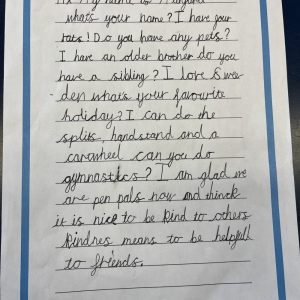 my name is
what's your name? I have four
rats! Do you have any pets?
I have an older brother do you
have a sibling? I love Swe
-den what's your favourite
holiday? I can do the
splits, handstand and a
cartwheel can you do
gymnastics? I am glad we
are pen pals now and think
it is nice to be kind to others
kindnes means to be helpfull
to friends.